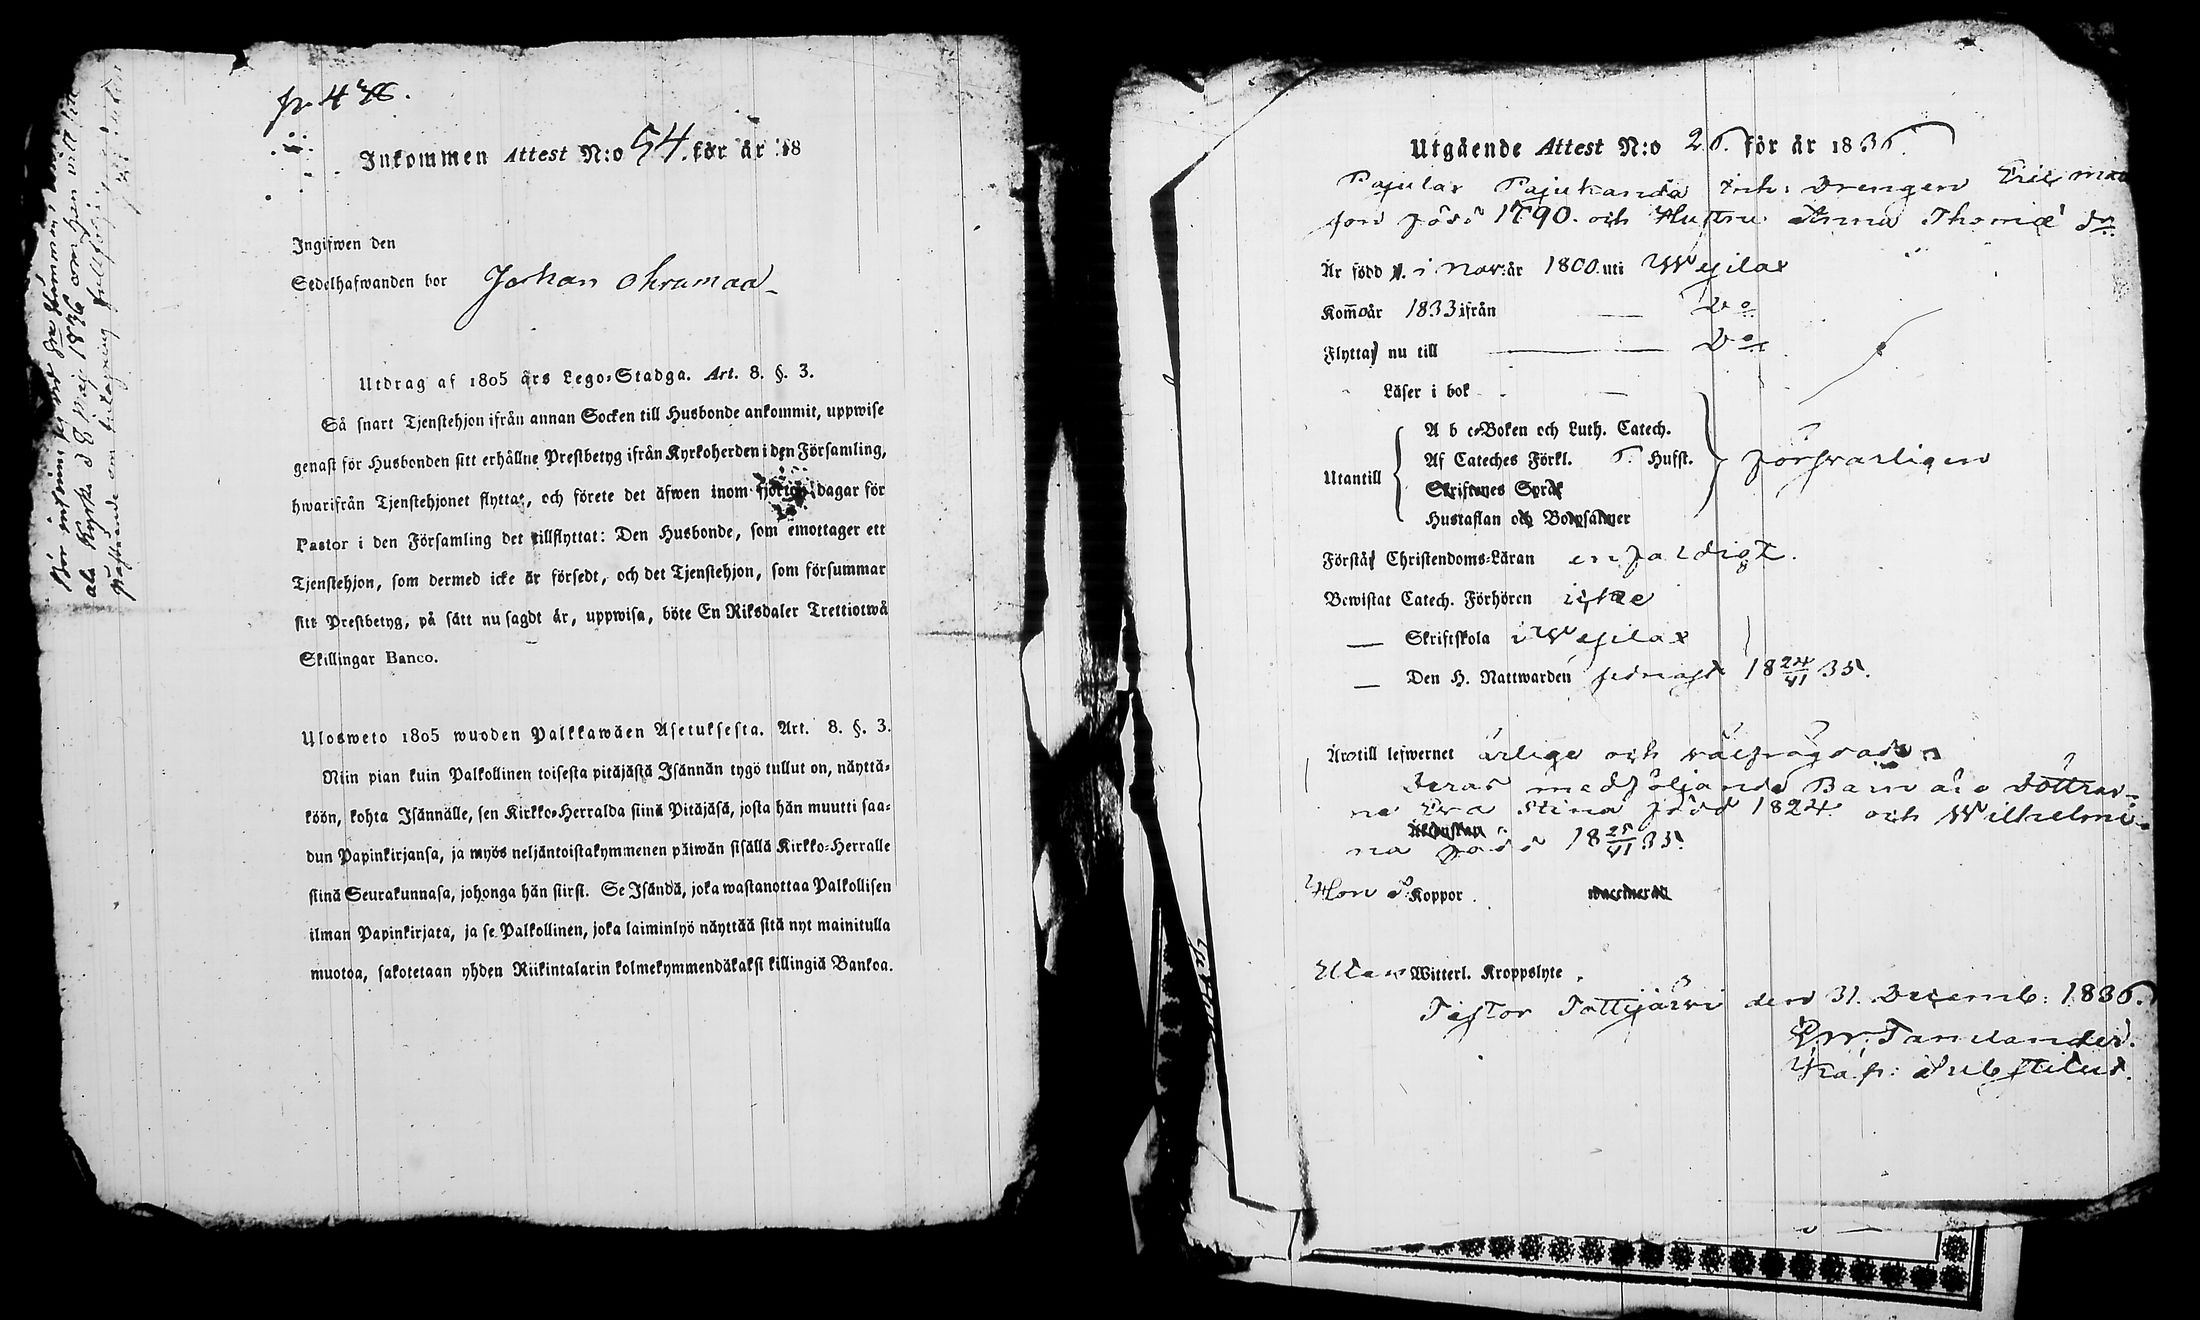 Inkommen Attest N:o 54. för år 18
Ingifwen den
Sedelhafwanden bor Johan
Utdrag af 1805 års Lego-Stadga. Art. 8. §. 3.
Så snart Tjenstehjon ifrån annan Socken till Husbonde ankommit, uppwise
genast för Husbonden sitt erhållne Prestbetyg ifrån Kyrkoherden i den Församling,
hwarifrån Tjenstehjonet flyttat, och förete det äfwen inom fjorton dagar för
Pastor i den Församling det tillflyttat: Den Husbonde, som emottager ett
Tjenstehjon, som dermed icke är försedt, och det Tjenstehjon, som försummar
sitt Prestbetyg, på sätt nu sagdt är, uppwisa, böte En Riksdaler Trettiotwå
Skillingar Banco.
Ulosweto 1805 wuoden Palkkawäen Asetuksesta. Art. 8. §. 3.
Niin pian kuin Palkollinen toisesta pitäjästä Isännän tygö tullut on, näyttä-
köön, kohta Isännälle, sen Kirkko-Herralda siinä Pitäjäsä, josta hän muutti saa-
dun Papinkirjansa, ja myös neljäntoistakymmenen päiwän sisällä Kirkko-Herralle
siinä Seurakunnasa, johonga hän siirsi. Se Isändä, joka wastanottaa Palkollisen
ilman Papinkirjata, ja se Palkollinen, joka laiminlyö näyttää sitä nyt mainitulla
muotoa, sakotetaan yhden Riikintalarin kolmekymmendäkaksi killingiä Bankoa.
Utgående Attest N:o 26. för år 1836.
Pajukanda Inh: Drengen Eric
son född 1790. och Hustru Anna Thomæ dr
Är född i Nov: år 1800. uti Wesilax
Kom år 1833 ifrån — Do
Flytta nu till — Do
Läser i bok —
Utantill
A b c-Boken och Luth. Catech.
Af Cateches Förkl. 6. Hufst.
Skriftenes Språk
Hustaflan och Botpsalmer
försvarligen
Förstår Christendoms-Läran enfaldigt.
Bewistat Catech. Förhören icke
— Skriftskola i Wesilax
— Den H. Nattwarden sednast 18 24/VI 35.
Äro till lefwernet ärlige och välfrägdade
deras medföljande Barn äro döttrar-
ne Eva Stina född 1824. och Wilhelmi-
na född 18 25/VI 35.
Hon Koppor. vaccinerad
Utan Witterl. Kroppslyte.
Tottijärvi den 31. Decemb: 1836.